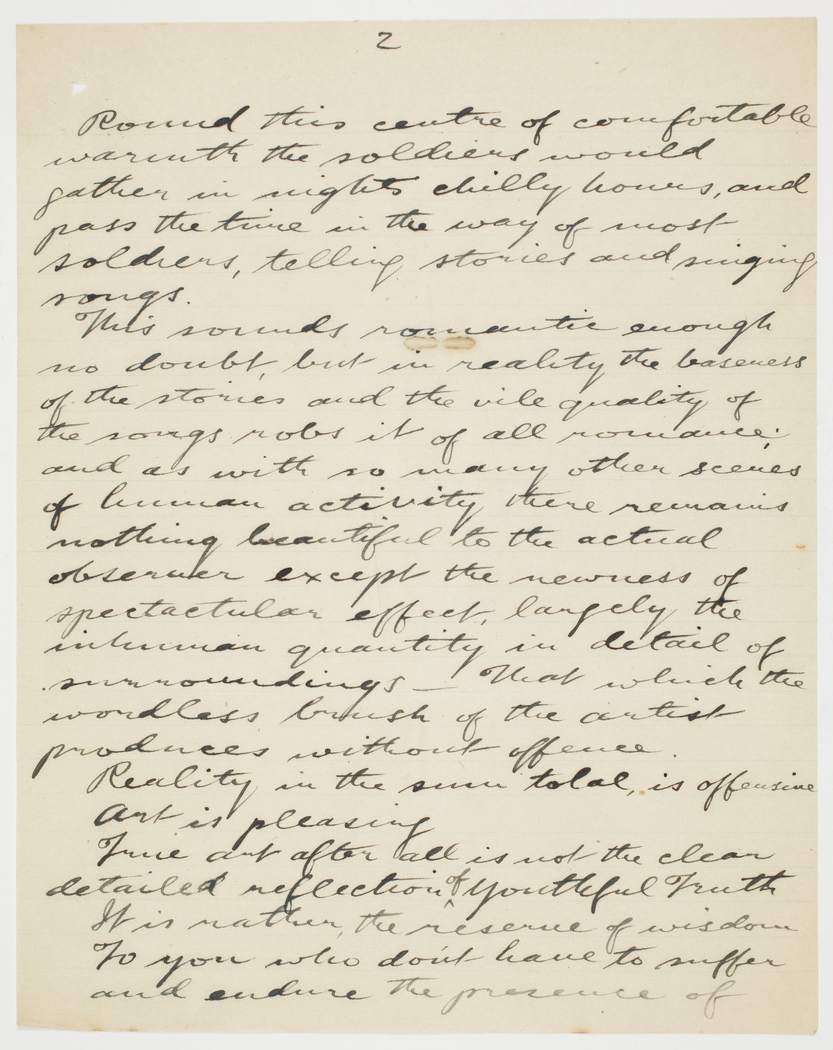 2
Round this centre of comfortable
warmth the soldiers would
gather in nights chilly hours, and
pass the time in the way of most
soldiers, telling stories and singing
songs.
This sounds romantic enough
no doubt, but in reality the baseness
of the stories and the vile quality of
the songs robs it of all romance;
and as with so many other scenes
of human activity there remains
nothing beautiful to the actual
observer except the newness of
spectactular effect, largely the
inhuman quantity in detail of
surroundings — That which the
wordless brush of the artist
produces without offence.
Reality in the sum total, is offensive
Art is pleasing
True art after all is not the clear
detailed reflection of Youthful Truth
It is rather, the reserve of wisdom
To you who don't have to suffer
and endure the presence of